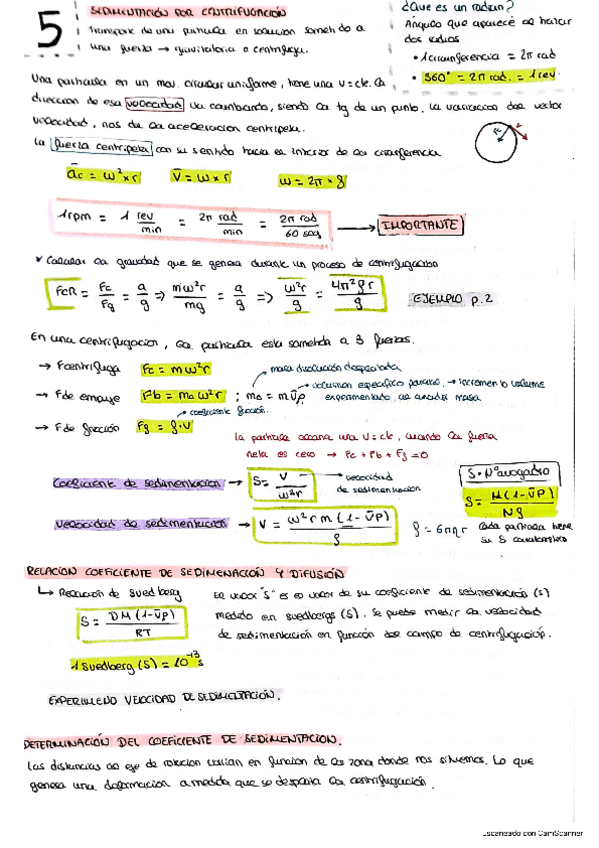 5
SEDIMENTACIÓN POR CENTRIFUGACIÓN
Transporte de una partícula en solucion sometida a
una fuerza → gravitatoria o centrifuga.
¿Que es un radian?
Ángulo que aparece al trazar
dos radios
• 1 circunferencia = 2π rad
• 360° = 2π rad. = 1 rev.
Una partícula en un mov. circular uniforme, tiene una v = cte. La
direccion de esa velocidad va cambiando, siendo la tg de un punto. La variacion del vector
velocidad, nos da la aceleracion centripeta.
La fuerza centripeta con su sentido hacia el interior de la circunferencia
ac = w² x r
v = w x r
w = 2π · f
1 rpm = 1 rev/min = 2π rad/min = 2π rad/60 seg
→ IMPORTANTE
Calcular la gravedad que se genera durante un proceso de centrifugacion
FCR = Fc/Fg = a/g ⇒ mw²r/mg = a/g ⇒ w²r/g = 4π²f²r/g
EJEMPLO p.2
En una centrifugacion, la partícula esta sometida a 3 fuerzas.
→ F centrífuga Fc = mw²r
masa disolución desplazada
→ F de empuje Fb = m₀w²r ; m₀ = m v̄ρ
volumen especifico parcial → incremento volumen
experimentado, al añadir masa
→ F de fricción Fg = f·v
coeficiente fricción
la partícula alcanza una v = cte, cuando la fuerza
neta es cero → Fc + Fb + Fg = 0
Coeficiente de sedimentacion → S = v/w²r
velocidad
de sedimentación
S · Nº avogadro
S = M(1-v̄ρ)/Nf
Velocidad de sedimentacion → v = w²rm(1-v̄ρ)/f
f = 6πηr
cada partícula tiene
su S característico
RELACION COEFICIENTE DE SEDIMENACIÓN Y DIFUSIÓN
↳ Reaccion de Svedberg
S = DM(1-v̄ρ)/RT
1 Svedberg (S) = 10⁻¹³ s
El valor "s" es el valor de su coeficiente de sedimentación (s)
medido en svedbergs (S). Se puede medir la velocidad
de sedimentacion en función del campo de centrifugación.
EXPERIMENO VELOCIDAD DE SEDIMENTACIÓN.
DETERMINACIÓN DEL COEFICIENTE DE SEDIMENTACION.
Las distancias al eje de rotacion varian en funcion de la zona donde nos situemos. Lo que
genera una deformacion a medida que se desplaza la centrifugación.
Escaneado con CamScanner